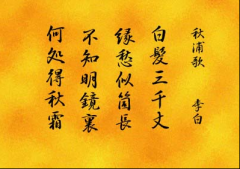 秋浦歌
李白
白髮三千丈
縁愁似箇長
不知明鏡裏
何処得秋霜